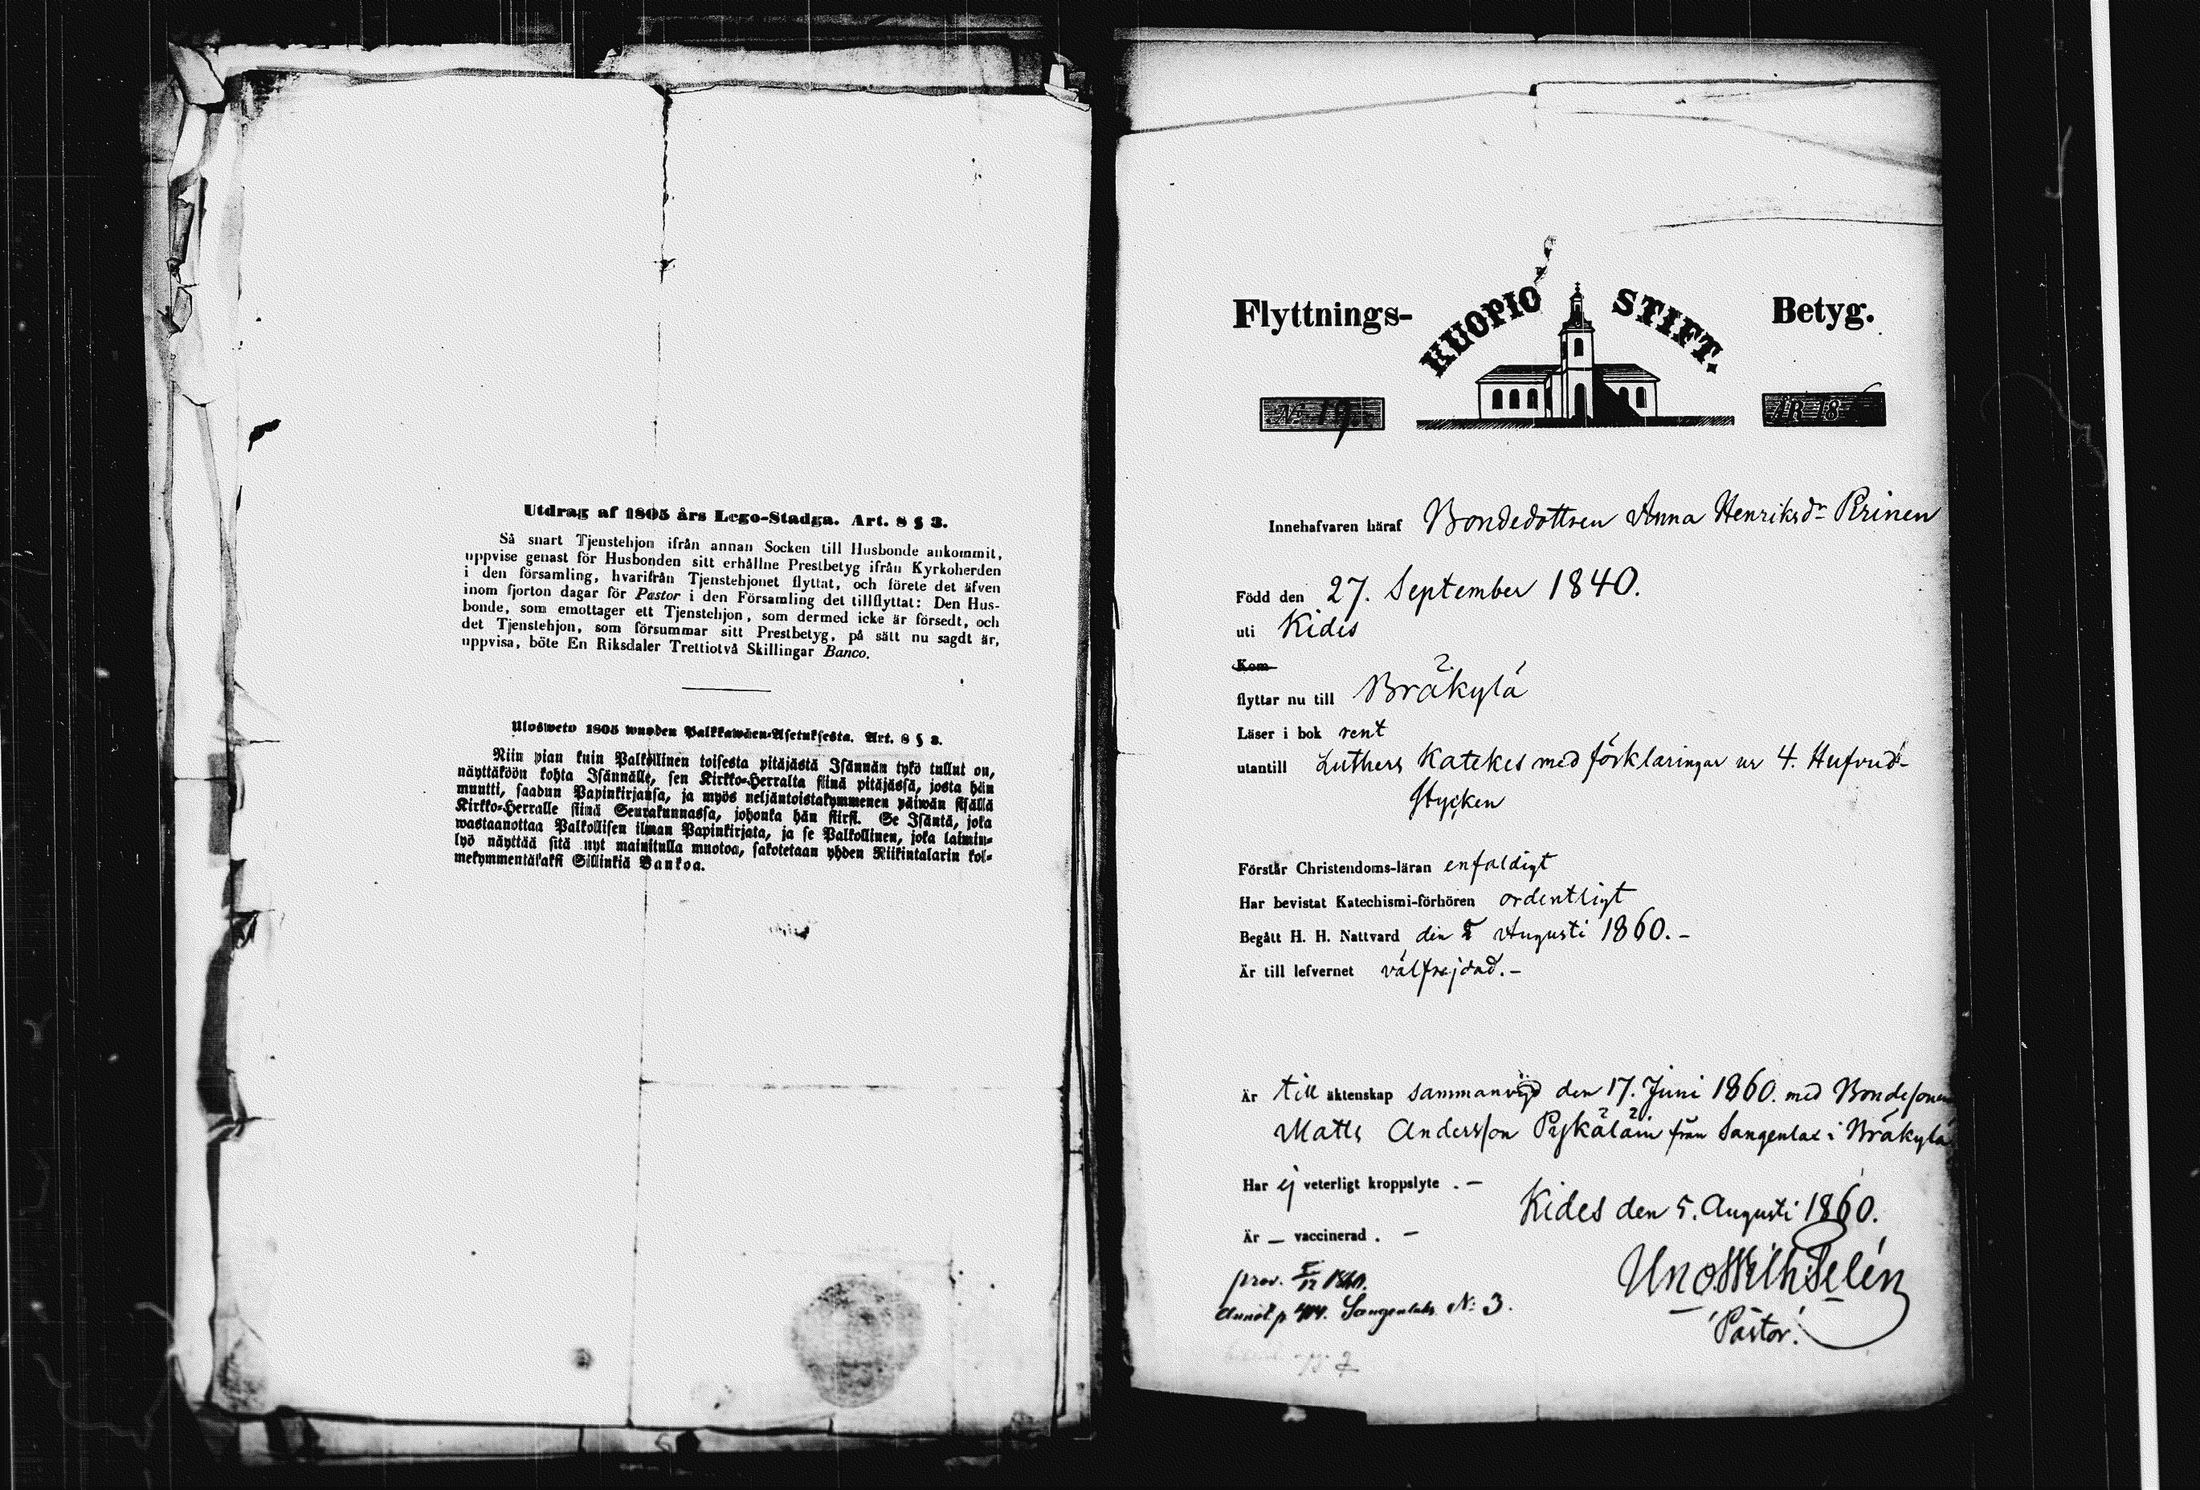 Utdrag af 1805 års Lego-Stadga. Art. 8 § 3.
Så snart Tjenstehjon ifrån annan Socken till Husbonde ankommit,
uppvise genast för Husbonden sitt erhållne Prestbetyg ifrån Kyrkoherden
i den församling, hvarifrån Tjenstehjonet flyttat, och förete det äfven
inom fjorton dagar för Pastor i den Församling det tillflyttat: Den Hus-
bonde, som emottager ett Tjenstehjon, som dermed icke är försedt, och
det Tjenstehjon, som försummar sitt Prestbetyg, på sätt nu sagdt är,
uppvisa, böte En Riksdaler Trettiotvå Skillingar Banco.
Ulosweto 1805 wuoden Palkkawäen-Asetuksesta. Art. 8 § 3.
Niin pian kuin Palkollinen toisesta pitäjästä Isännän tykö tullut on,
näyttäköön kohta Isännälle, sen Kirkko-Herralta siinä pitäjässä, josta hän
muutti, saadun Papinkirjansa, ja myös neljäntoistakymmenen päiwän sisällä
Kirkko-Herralle siinä Seurakunnassa, johonka hän siirsi. Se Isäntä, joka
wastaanottaa Palkollisen ilman Papinkirjata, ja se Palkollinen, joka laimin-
lyö näyttää sitä nyt mainitulla muotoa, sakotetaan yhden Riikintalarin kol-
mekymmentäkaksi Sillinkiä Bankoa.
Flyttnings- KUOPIO STIFT. Betyg.
No 19. ÅR 18
Innehafvaren häraf Bondedottren Anna Henriksdr Pirinen
Född den 27. September 1840.
uti Kides
Kom
flyttar nu till Bräkylä
Läser i bok rent
utantill Luthers Katekes med förklaringar ur 4. Hufvud-
stycken
Förstår Christendoms-läran enfaldigt
Har bevistat Katechismi-förhören ordentligt
Begått H. H. Nattvard den 5 Augusti 1860. –
Är till lefvernet välfrejdad. –
Är till äktenskap sammanvigd den 17. Juni 1860. med Bondesonen
Matts Andersson Pykäläin från Sangenlax i Bräkylä
Har ej veterligt kroppslyte . –
Kides den 5. Augusti 1860.
Är – vaccinerad . –
Uno Wilh: Selén
Pastor.
Annot. p 414. Sangenlaks. N: 3.